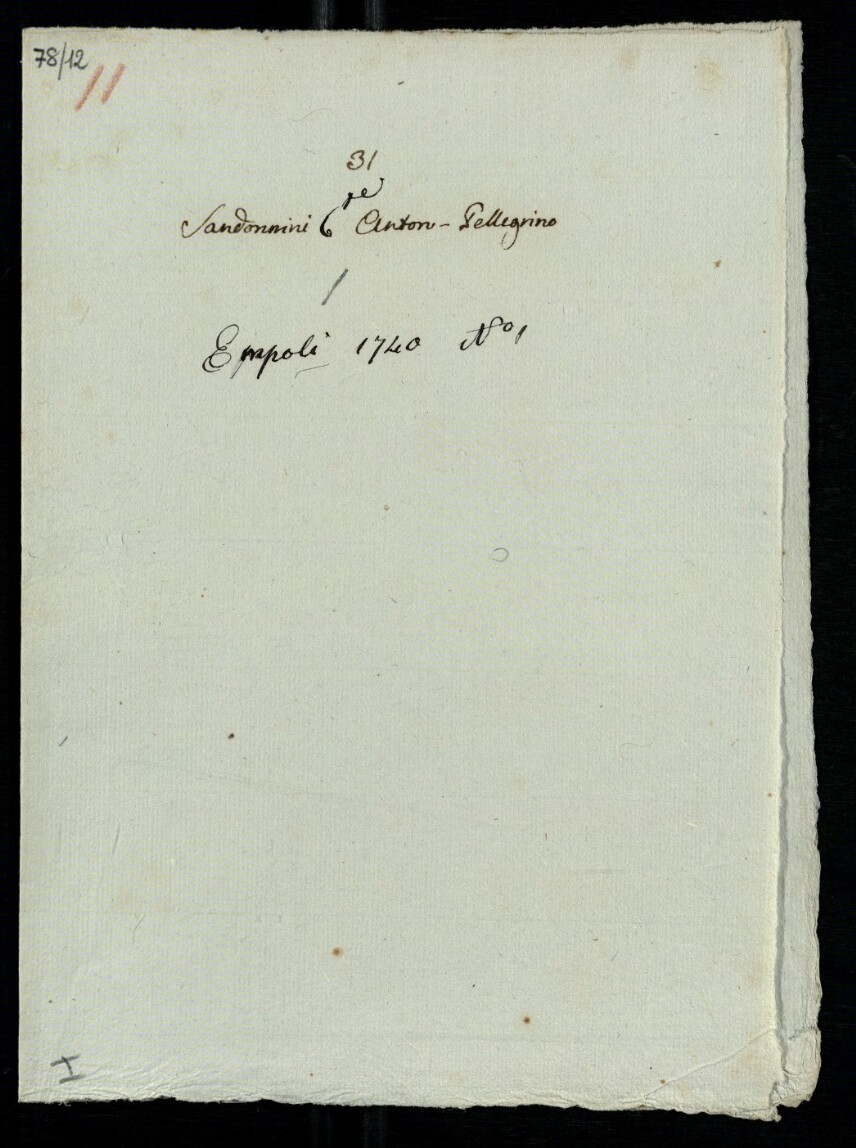 78/12
11
31
Sandonnini Gre Anton-Pellegrino
/
Empoli 1740 No 1
I